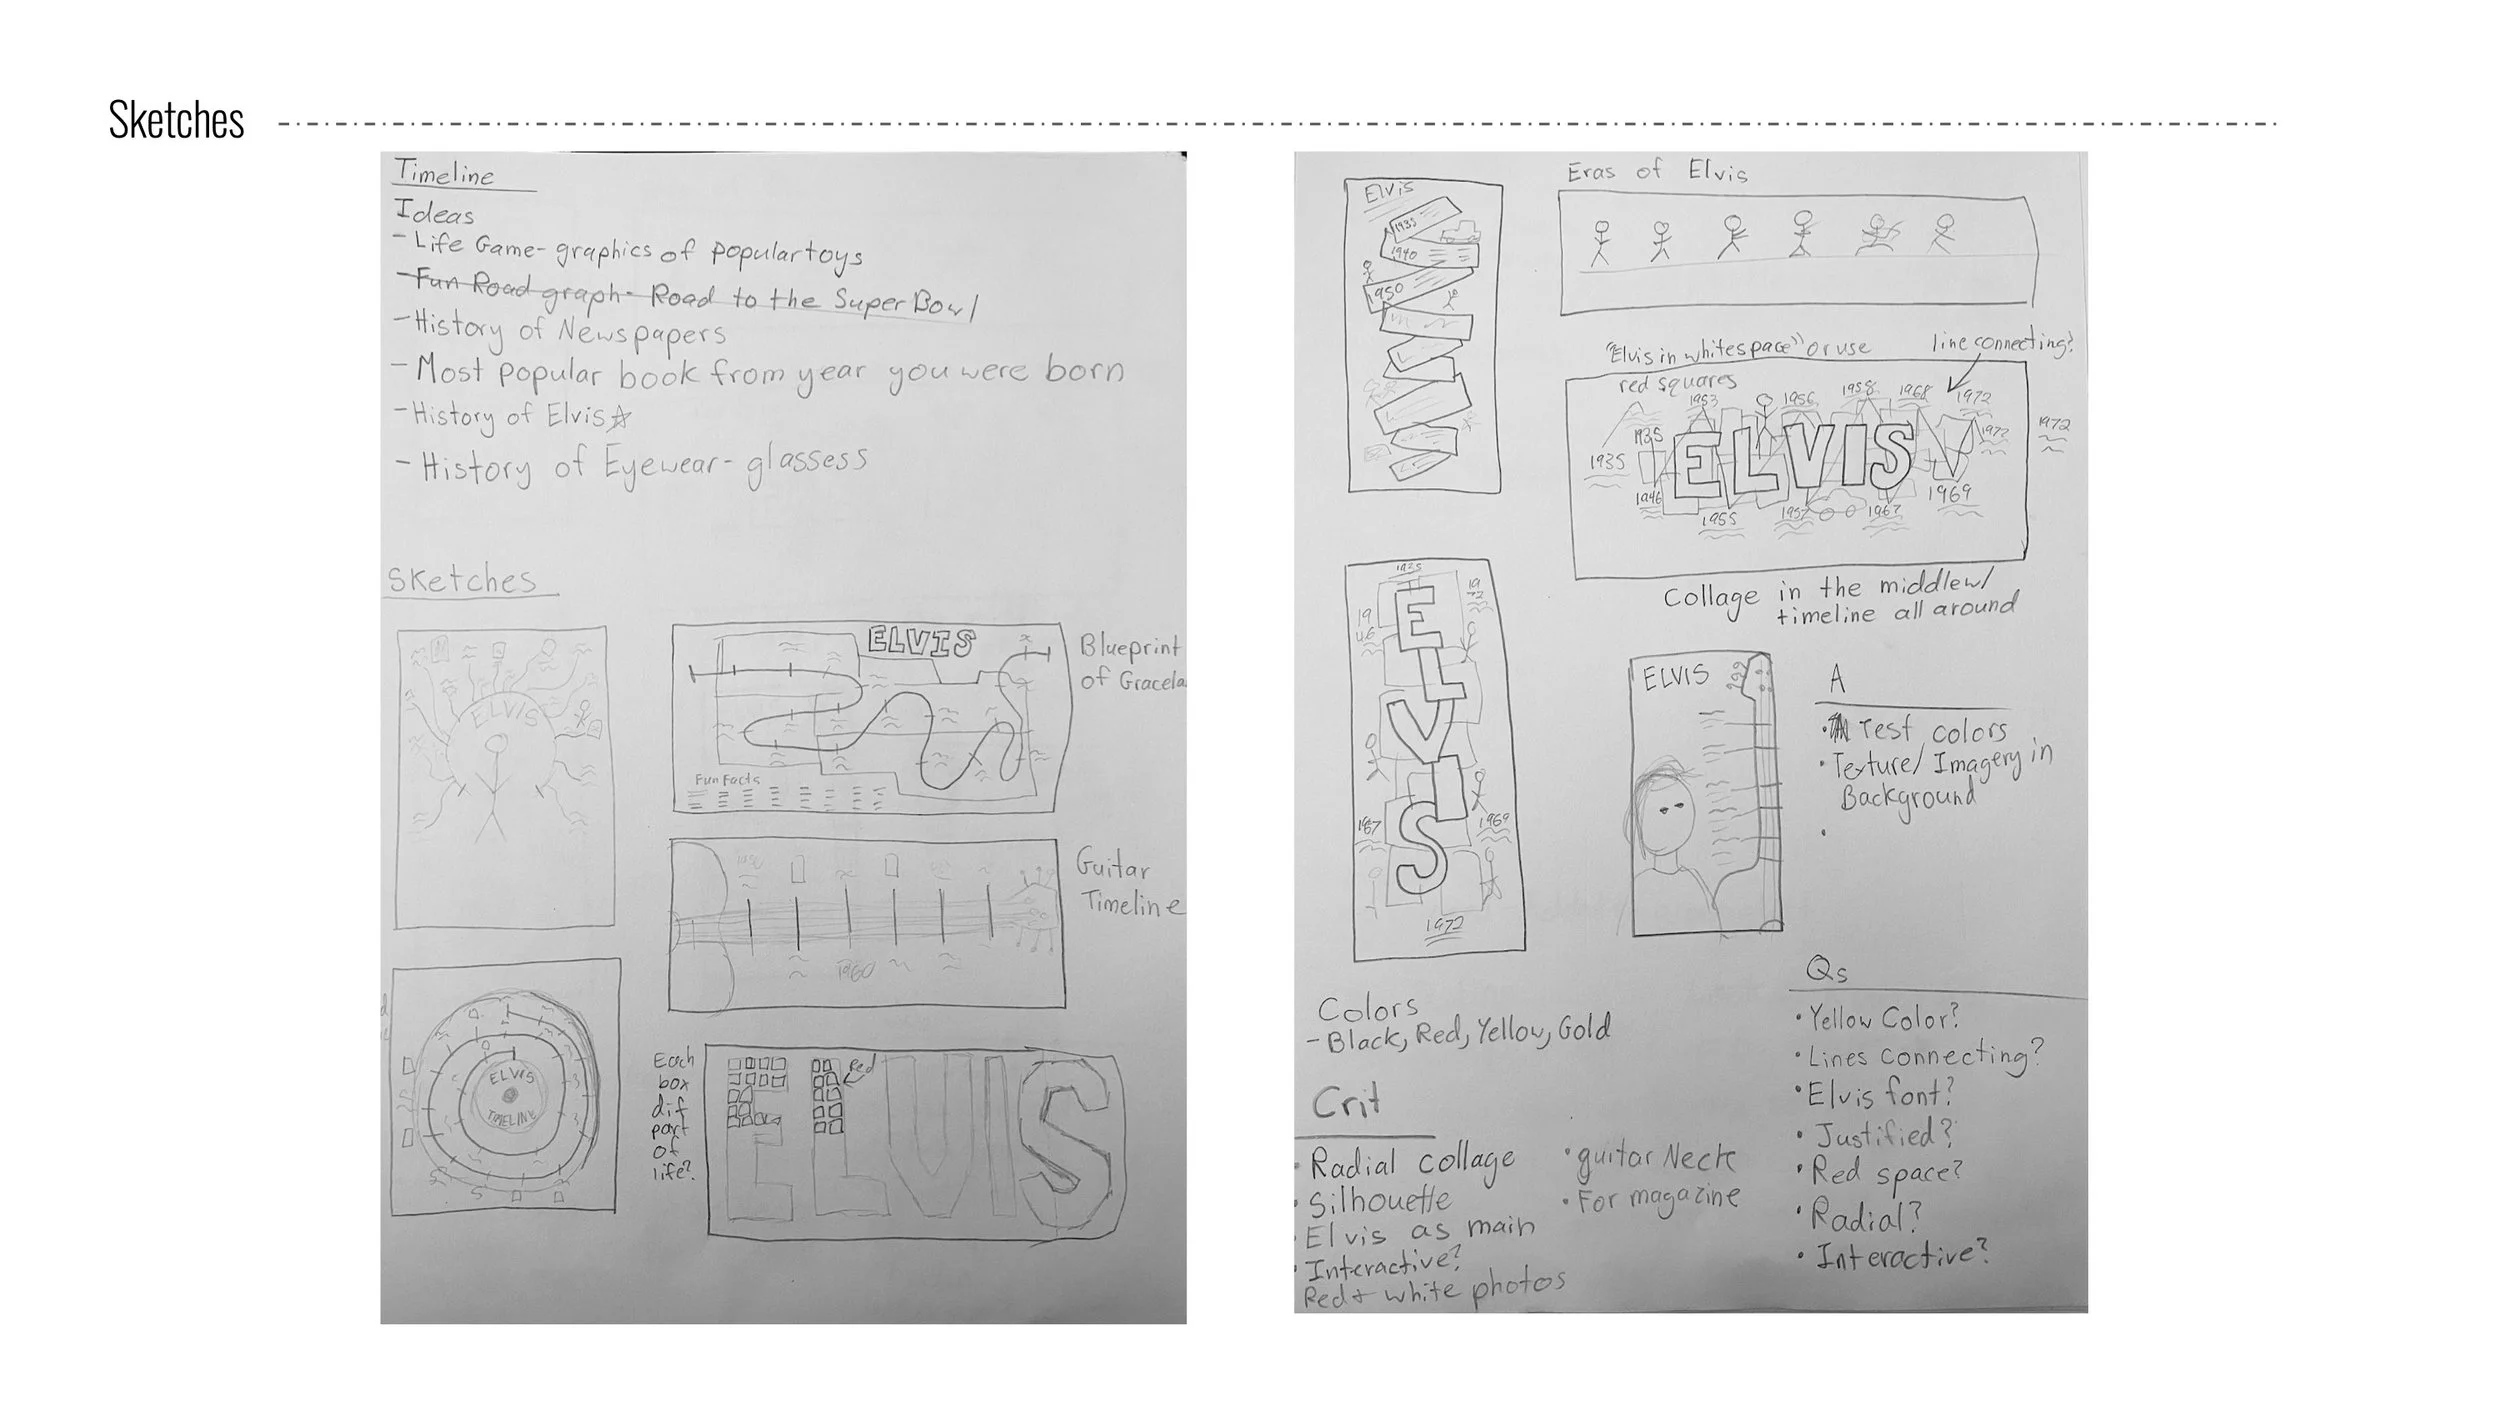 Sketches
Timeline
Ideas
- Life Game- graphics of popular toys
- Fun Road graph- Road to the Super Bowl
- History of Newspapers
- Most popular book from year you were born
- History of Elvis
- History of Eyewear- glassess
Sketches
ELVIS
ELVIS
Blueprint
of Gracela
Fun Facts
Guitar
Timeline
1960
ELVIS
TIMELINE
Each
box
dif
part
of
life?
Red
ELVIS
Elvis
1935
1940
1950
Eras of Elvis
"Elvis in whitespace" or use
red squares
line connecting?
1953
1956
1958
1968
1972
1935
1935
1972
1972
ELVIS
1946
1969
1955
1957
1967
Collage in the middle w/
timeline all around
1935
19
72
19
46
ELVIS
1967
1969
1972
ELVIS
A
• Test colors
• Texture/ Imagery in
Background
•
Colors
- Black, Red, Yellow, Gold
Crit
• Radial collage
• Silhouette
• Elvis as main
• Interactive?
Red + white photos
• guitar Neck
• For magazine
Qs
• Yellow Color?
• Lines connecting?
• Elvis font?
• Justified?
• Red space?
• Radial?
• Interactive?